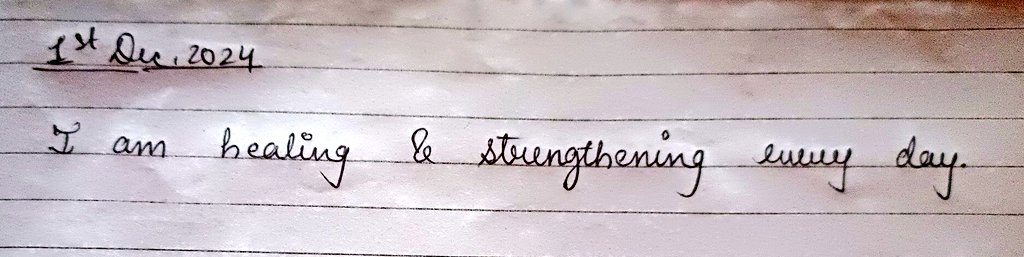 1st Dec, 2024
I am healing & strengthening every day.